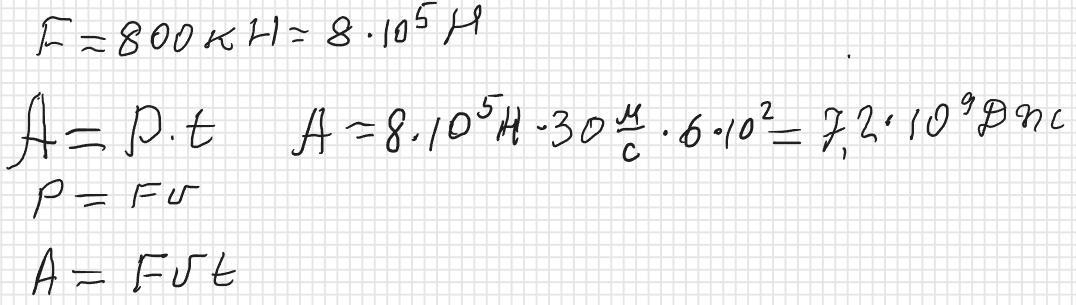 F = 800 кН = 8 · 10⁵ Н
A = P · t A = 8 · 10⁵ Н · 30 м/с · 6 · 10² = 7,2 · 10⁹ Дж
P = Fv
A = Fvt